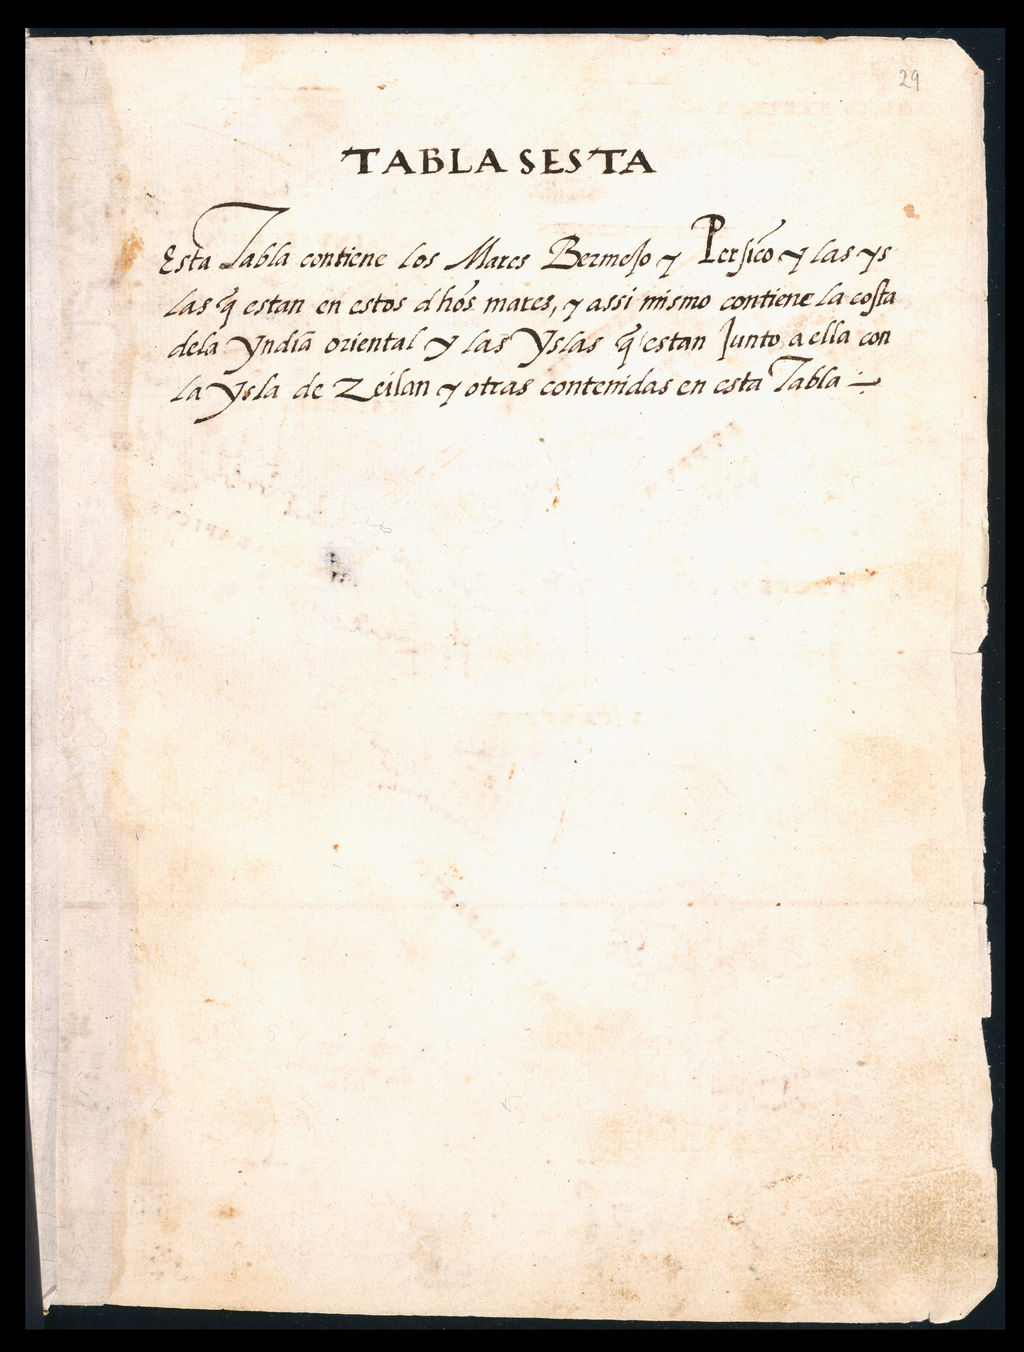 29
TABLA SESTA
Esta Tabla contiene los Mares Bermejo y Persico y las ys
las q̃ estan en estos dhõs mares, y assi mismo contiene la costa
dela Yndia oriental y las Yslas q̃ estan Junto, a ella con
la Ysla de Zeilan y otras contenidas en esta Tabla